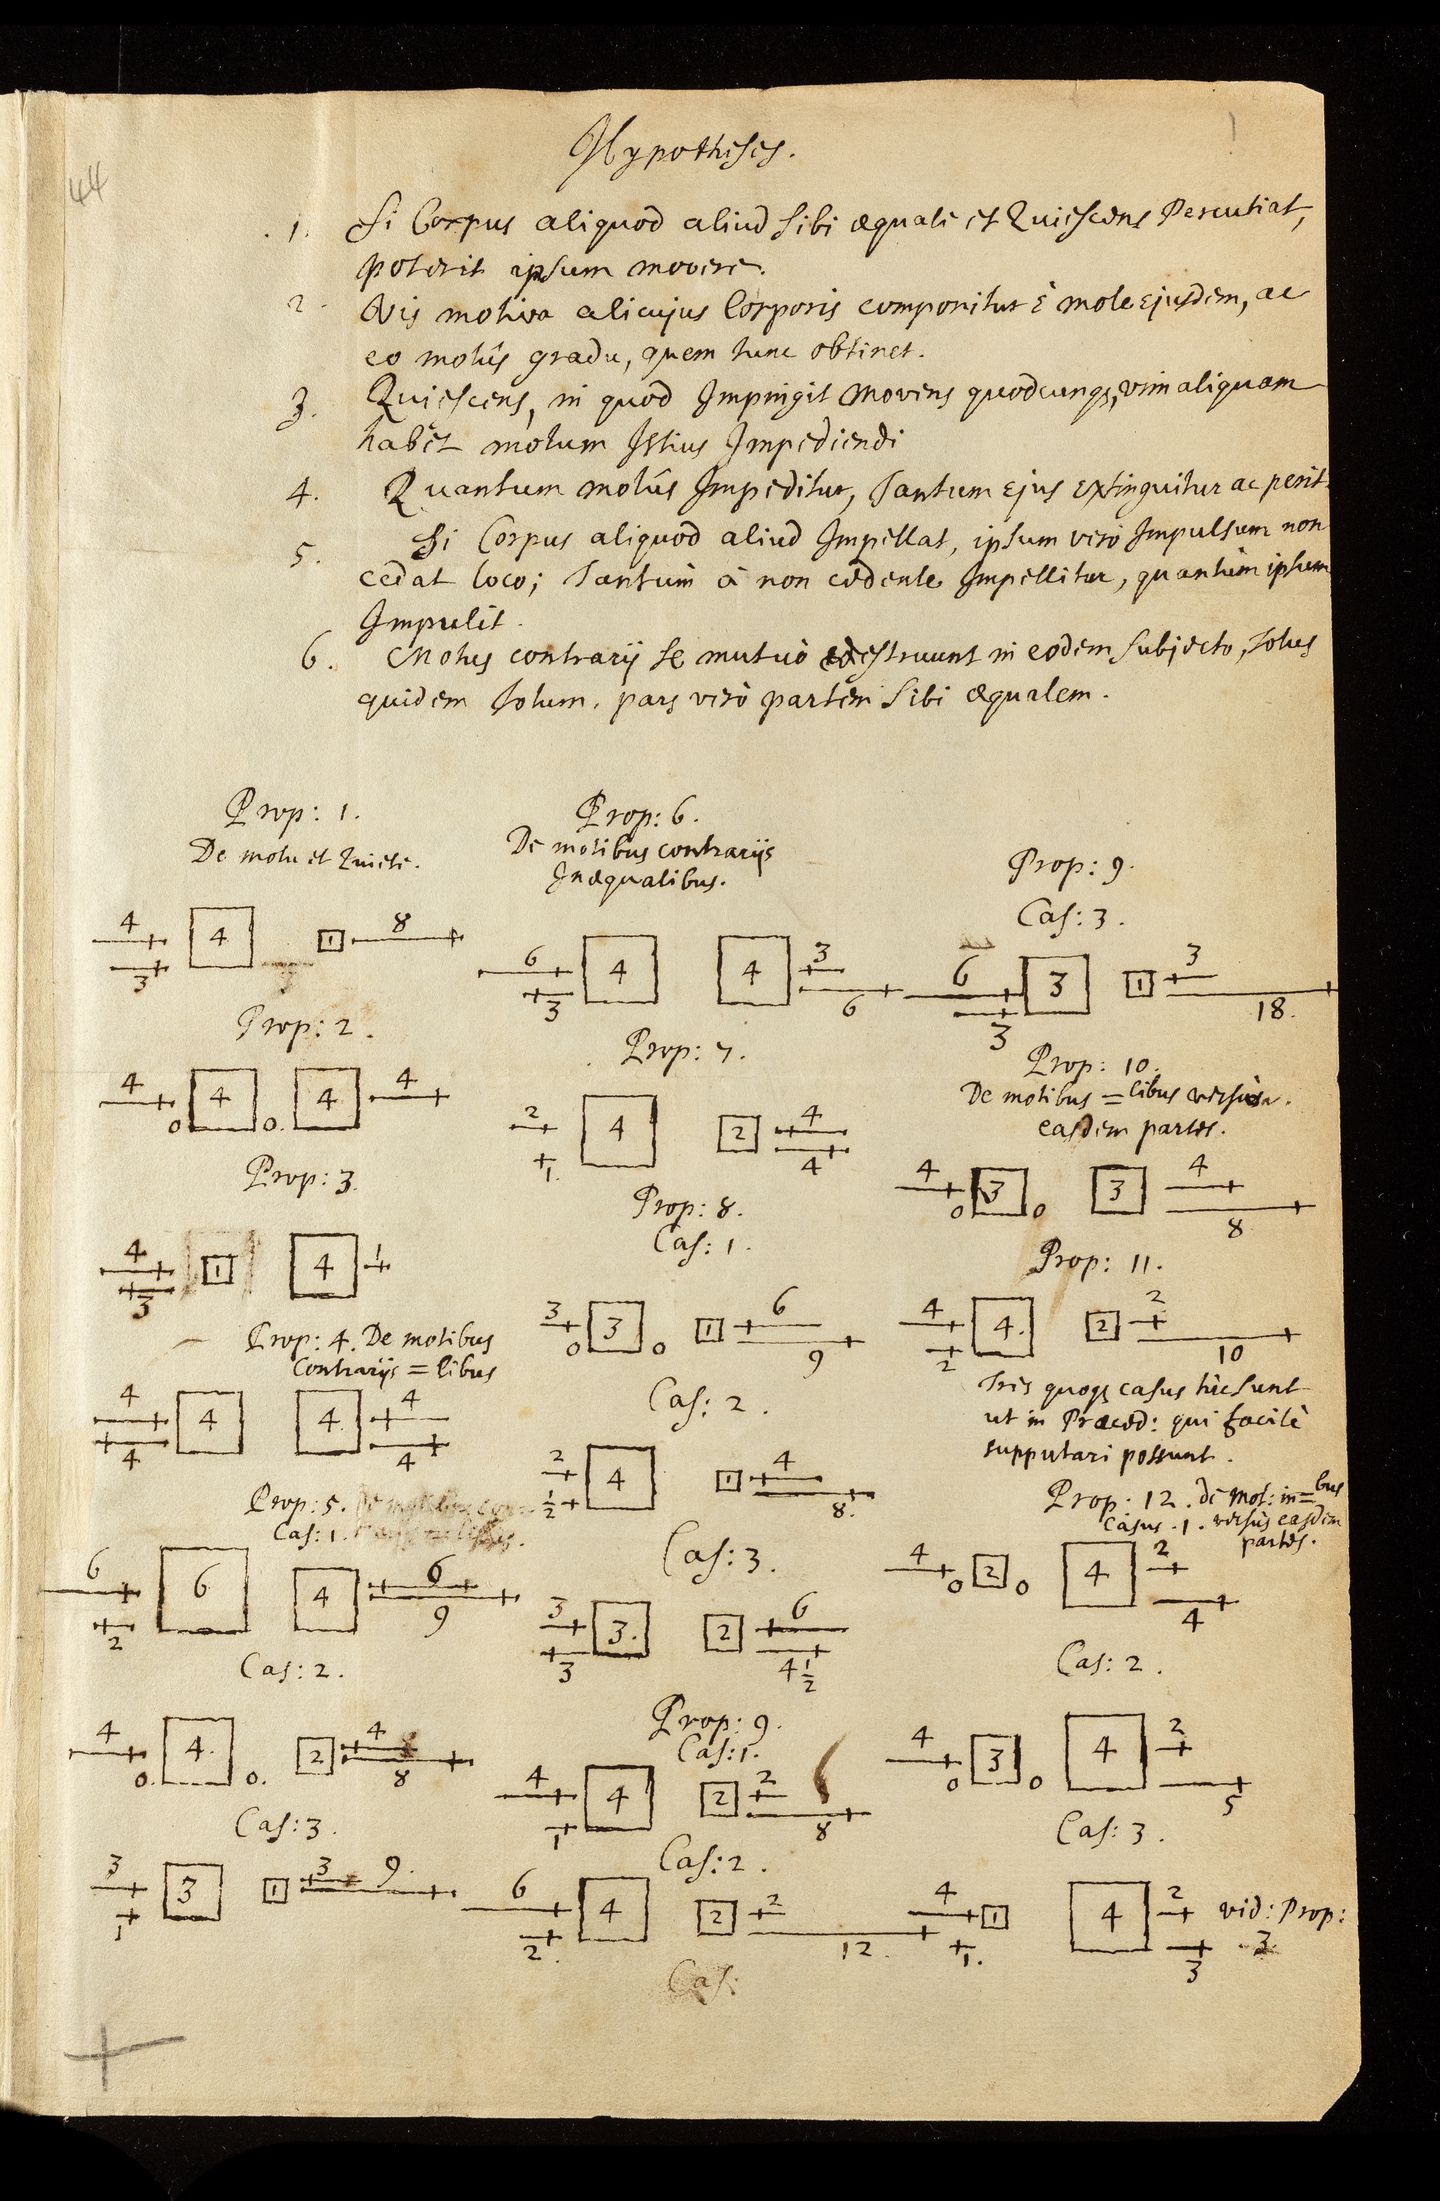 44
1
Hypotheses.
1. Si Corpus aliquod aliud sibi æquale et Quiescens Percutiat,
poterit ipsum movere.
2. Vis motiva alicujus Corporis componitur è mole ejusdem, ac
eo motûs gradu, quem tunc obtinet.
3. Quiescens, in quod Impingit Movens quodcunqꝫ, vim aliquam
habet motum Istius Impediendi
4. Quantum motûs Impeditur, Tantum ejus extinguitur ac perit.
5. Si Corpus aliquod aliud Impellat, ipsum verò Impulsum non
cedat loco; Tantùm à non cedente Impellitur, quantùm ipsum
Impulit.
6. Motus contrarij se mutuò destruunt in eodem subjecto, totus
quidem totum, pars verò partem sibi æqualem.
Prop: 1.
De motu et Quiete.
4 4 1 8
3
Prop: 2.
4 4 4 4
0 0.
Prop: 3.
4 1 4 1
3
Prop: 4. De motibus
Contrarijs = libus
4 4 4 4
4 4
Prop: 5.
Cas: 1.
6 6 4 6
2 9
Cas: 2.
4 4. 2 4
0. 0. 8
Cas: 3.
3 3 1 3 9.
1
Prop: 6.
De motibus contrarijs
Inæqualibus.
6 4 4 3
3 6
Prop: 7.
2 4 2 4
1. 4
Prop: 8.
Cas: 1.
3 3 1 6
0 0 9
Cas: 2.
2 4 1 4
1/2 8.
Cas: 3.
3 3. 2 6
3 4 1/2
Prop: 9.
Cas: 1.
4 4 2 2
1 8
Cas: 2.
6 4 2 2
2. 12.
Cas:
Prop: 9.
Cas: 3.
6 3 1 3
3 18.
Prop: 10.
De motibus = libus versùs
easdem partes.
4 3 3 4
0 0 8
Prop: 11.
4 4. 2 2
2 10
Tres quoqꝫ casus hîc sunt
ut in Præced: qui facilè
supputari possunt.
Prop: 12. de Mot: in=bus
Casus. 1. versùs easdem
partes.
4 2 4 2
0 0 4
Cas: 2.
4 3 4 2
0 0 5
Cas: 3.
4 1 4 2 vid: Prop:
1. 3 3